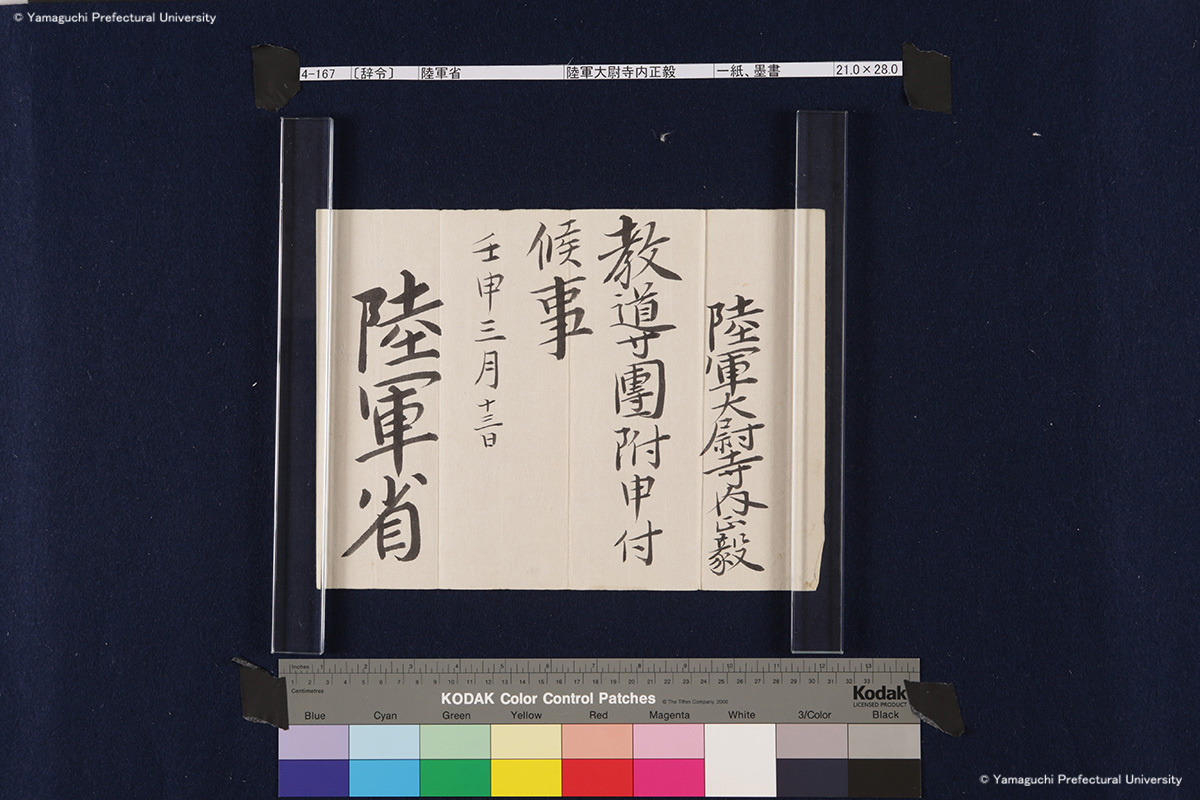 © Yamaguchi Prefectural University
4-167 〔辞令〕 陸軍省 陸軍大尉寺内正毅 一紙、墨書 21.0×28.0
陸軍大尉寺内正毅
教導團附申付
候事
壬申三月十三日
陸軍省
Inches 1 2 3 4 5 6 7 8 9 10 11 12 13
1 2 3 4 5 6 7 8 9 10 11 12 13 14 15 16 17 18 19 20 21 22 23 24 25 26 27 28 29 30 31 32 33
Centimetres
KODAK Color Control Patches © The Tiffen Company, 2000
Kodak
LICENSED PRODUCT
Blue Cyan Green Yellow Red Magenta White 3/Color Black
© Yamaguchi Prefectural University